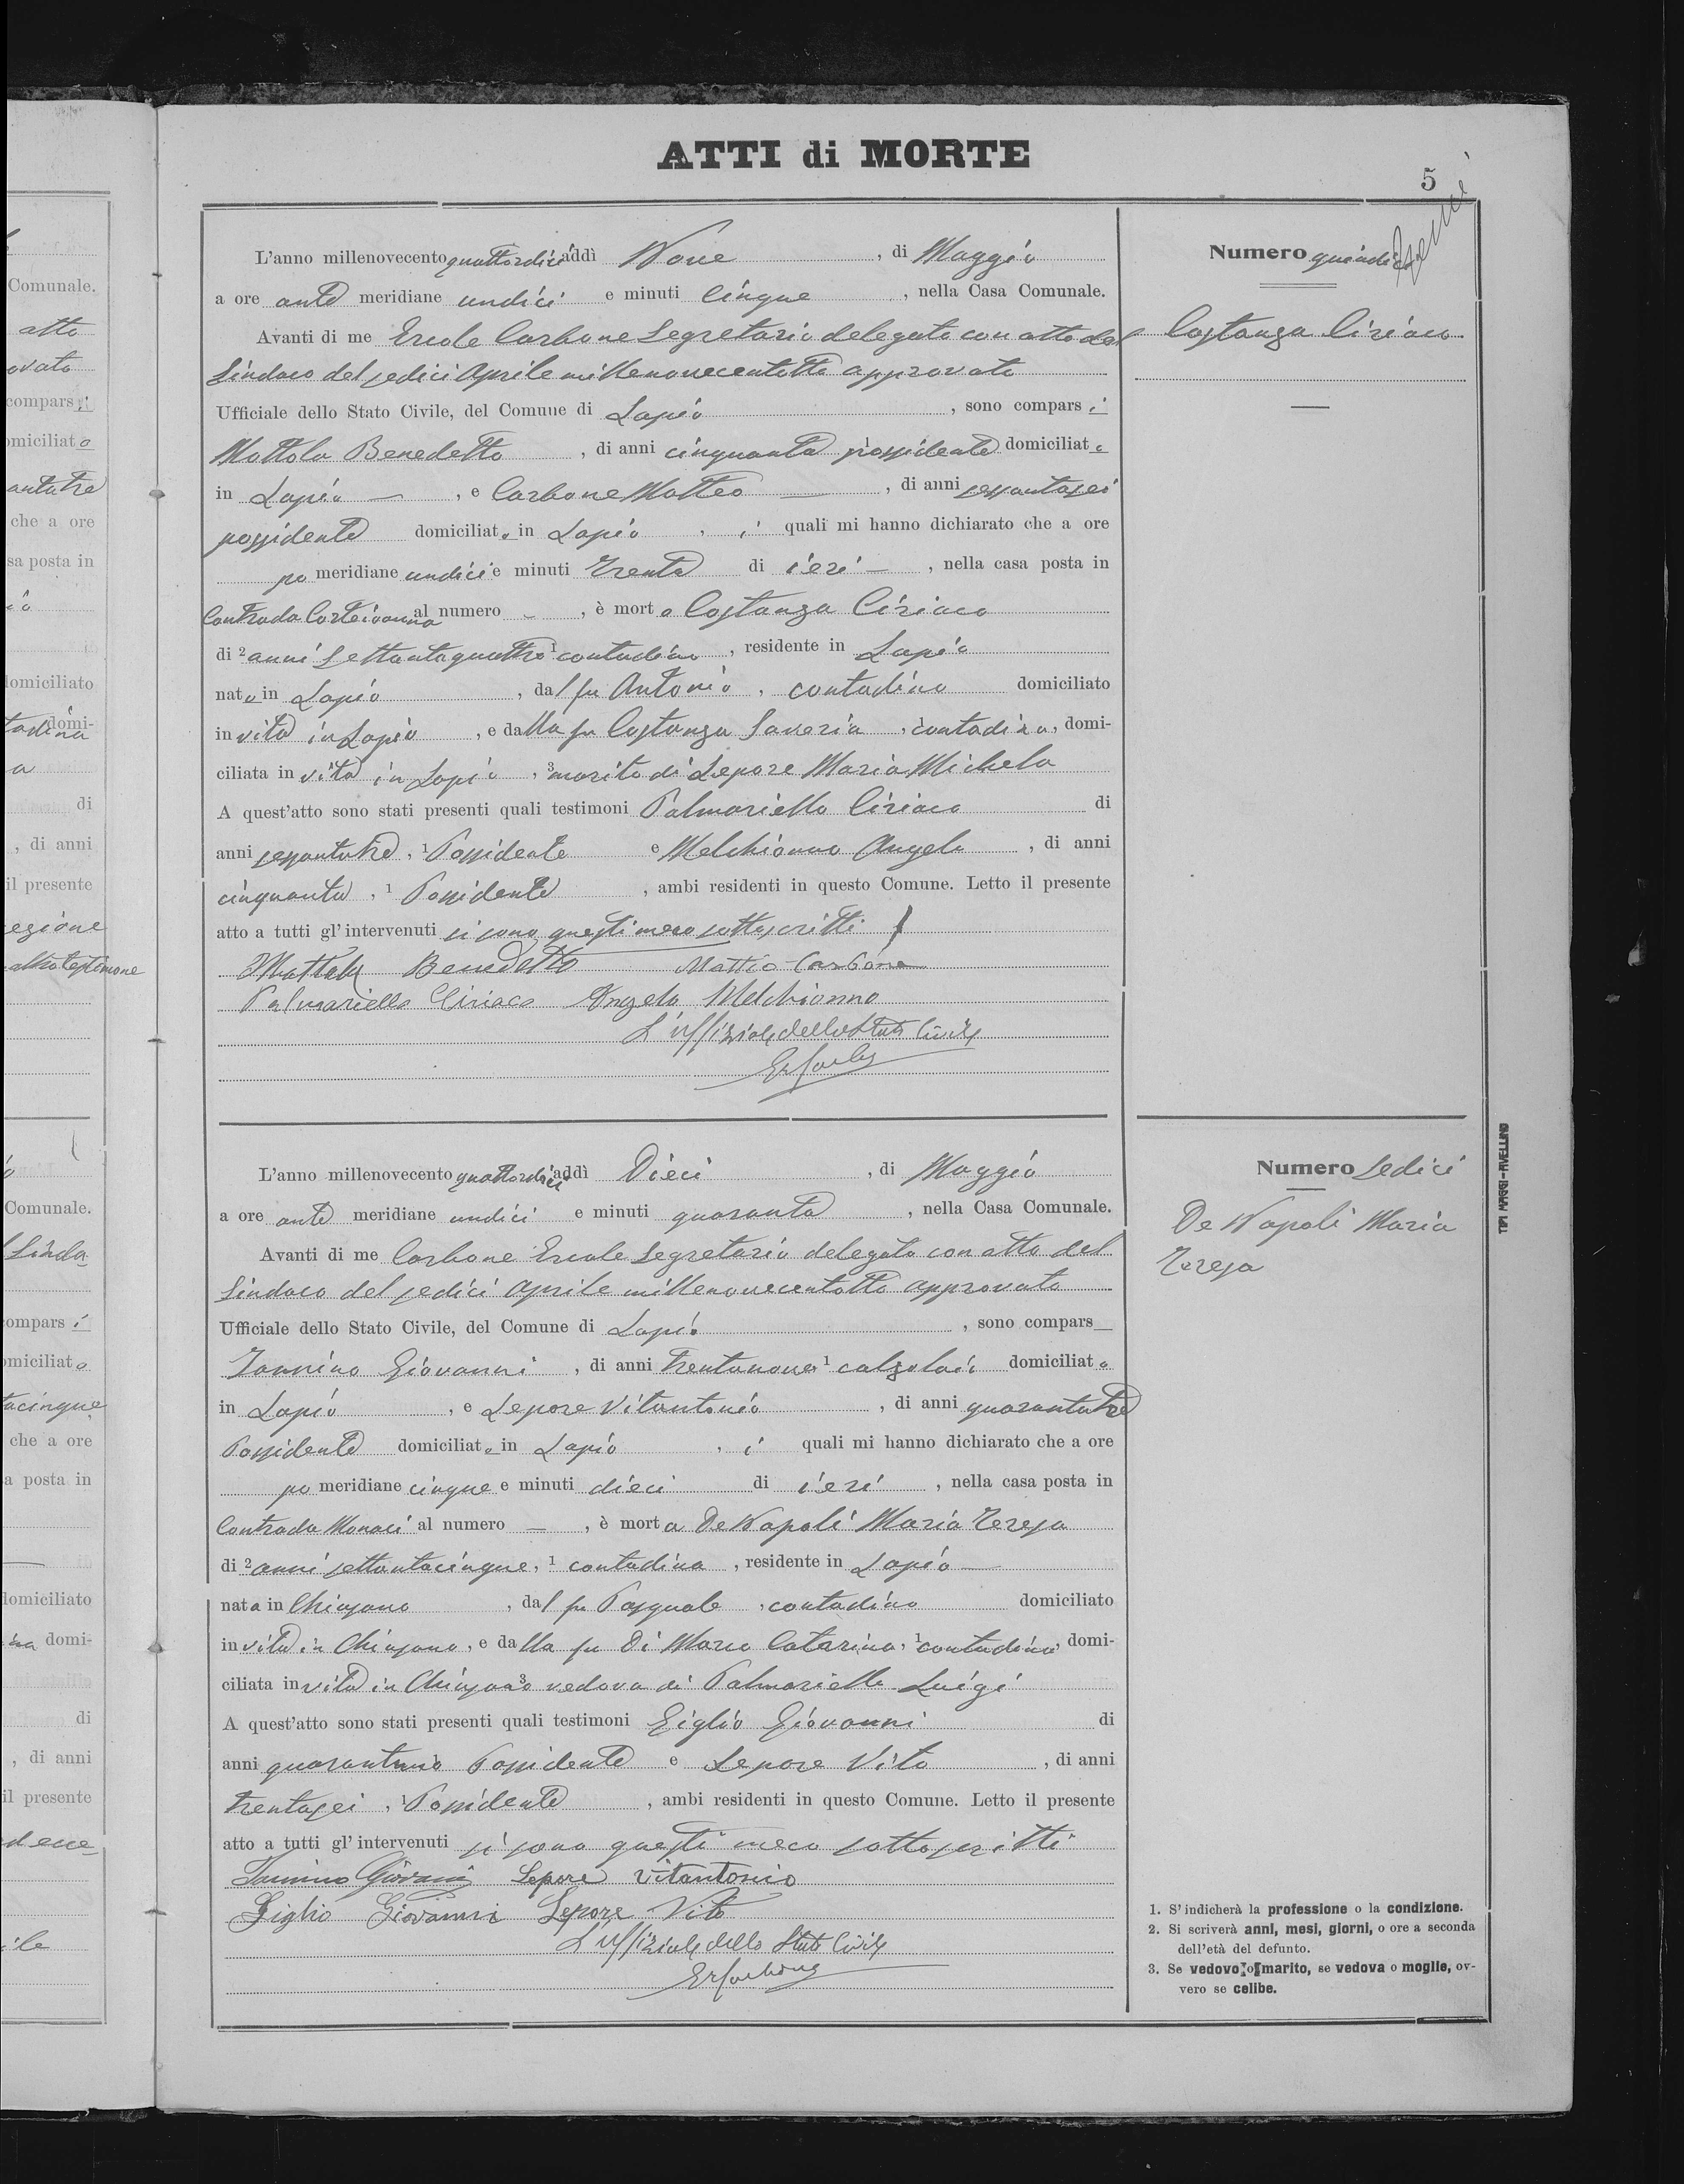 ATTI di MORTE
5
L'anno millenovecento quattordici addì Nove, di Maggio
a ore ante meridiane undici e minuti Cinque, nella Casa Comunale.
Avanti di me Ercole Carbone Segretario delegato con atto del
Sindaco del sedici Aprile millenovecentotto approvato
Ufficiale dello Stato Civile, del Comune di Lapio, sono compars i
Mottola Benedetto, di anni cinquanta possidente domiciliato
in Lapio —, e Carbone Matteo —, di anni sessantasei
possidente domiciliato in Lapio, i quali mi hanno dichiarato che a ore
po meridiane undici e minuti Trenta di ieri —, nella casa posta in
Contrada al numero —, è morto Costanza Ciriaco
di 2 anni Settantaquattro 1 contadino, residente in Lapio
nato in Lapio, dal fu Antonio, contadino domiciliato
in vita in Lapio, e dalla fu Costanza Saveria, 1 contadina, domi-
ciliata in vita in Lapio, 3 marito di Lepore Maria Michela
A quest'atto sono stati presenti quali testimoni Palmariello Ciriaco di
anni sessantatre, 1 Possidente e Melchionno Angelo, di anni
cinquanta, 1 Possidente, ambi residenti in questo Comune. Letto il presente
atto a tutti gl'intervenuti si sono questi meco sottoscritti
Mottola Benedetto Matteo Carbone
Palmariello Ciriaco Angelo Melchionno
L'Uffiziale dello Stato Civile
Numero quindici
Costanza Ciriaco
L'anno millenovecento quattordici addì Dieci, di Maggio
a ore ante meridiane undici e minuti quaranta, nella Casa Comunale.
Avanti di me Carbone Ercole Segretario delegato con atto del
Sindaco del sedici Aprile millenovecentotto approvato
Ufficiale dello Stato Civile, del Comune di Lapio, sono compars
Iannino Giovanni, di anni trentanove 1 calzolaio domiciliato
in Lapio, e Lepore Vitantonio, di anni quarantatre
Possidente domiciliato in Lapio, i quali mi hanno dichiarato che a ore
po meridiane cinque e minuti dieci di ieri, nella casa posta in
Contrada Monaci al numero —, è morta De Napoli Maria Teresa
di 2 anni settantacinque, 1 contadina, residente in Lapio —
nata in Chiusano, dal fu Pasquale, contadino domiciliato
in vita in Chiusano, e dalla fu Di Marco Catarina, 1 contadina, domi-
ciliata in vita in Chiusano 3 vedova di Palmariello Luigi
A quest'atto sono stati presenti quali testimoni Giglio Giovanni di
anni quarantuno Possidente e Lepore Vito, di anni
trentasei, 1 Possidente, ambi residenti in questo Comune. Letto il presente
atto a tutti gl'intervenuti si sono questi meco sottoscritti
Iannino Giovanni Lepore Vitantonio
Giglio Giovanni Lepore Vito
L'Uffiziale dello Stato Civile
ErCarbone
Numero Sedici
De Napoli Maria
Teresa
1. S'indicherà la professione o la condizione.
2. Si scriverà anni, mesi, giorni, o ore a seconda
dell'età del defunto.
3. Se vedovo o marito, se vedova o moglie, ov-
vero se celibe.
TIP. MAGGI - AVELLINO